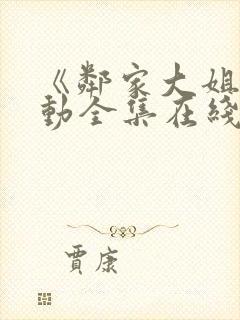 《鄰家大姐
動全集在綫
賈康